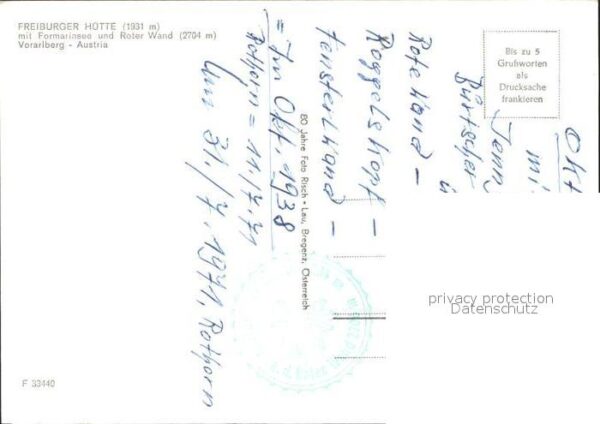 FREIBURGER HÜTTE (1931 m)
mit Formarinsee und Roter Wand (2704 m)
Vorarlberg - Austria
Bis zu 5
Grußworten
als
Drucksache
frankieren
Okt
mi
Jenn
Burtscher
Rote Wand –
Roggelskopf –
Fensterlwand –
= Im Okt. 1938
Rothorn = 11./7.71
Am 31./7. 1971, Rothorn
80 Jahre Foto Risch - Lau, Bregenz, Österreich
privacy protection
Datenschutz
F 33440